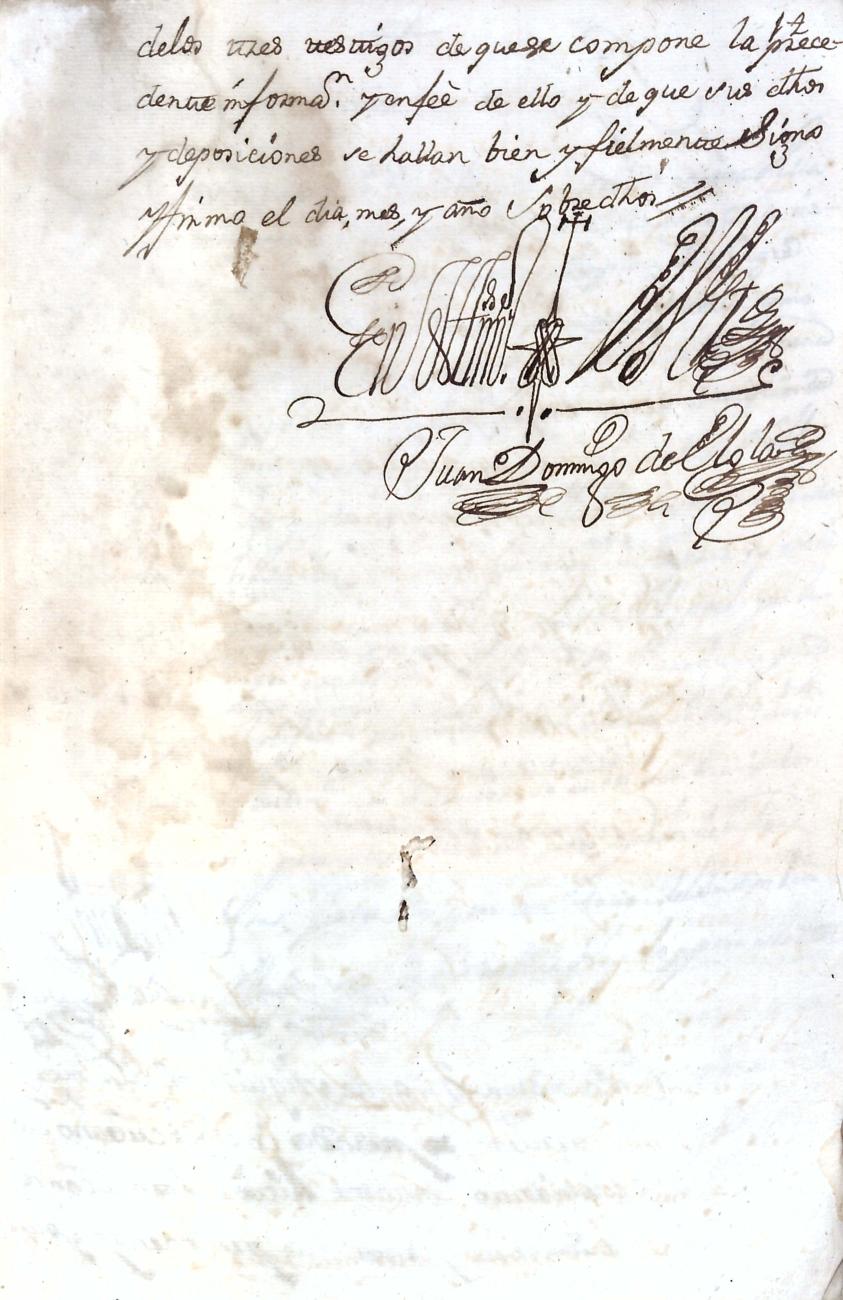 14
delos tres testigos de que se compone la prece-
dente informaon. y en feè de ello y de que sus dhos
y deposiciones se hallan bien y fielmente Signo
y firmo el dia, mes, y año Sobredhos
En testim.o de
Juan Domingo de